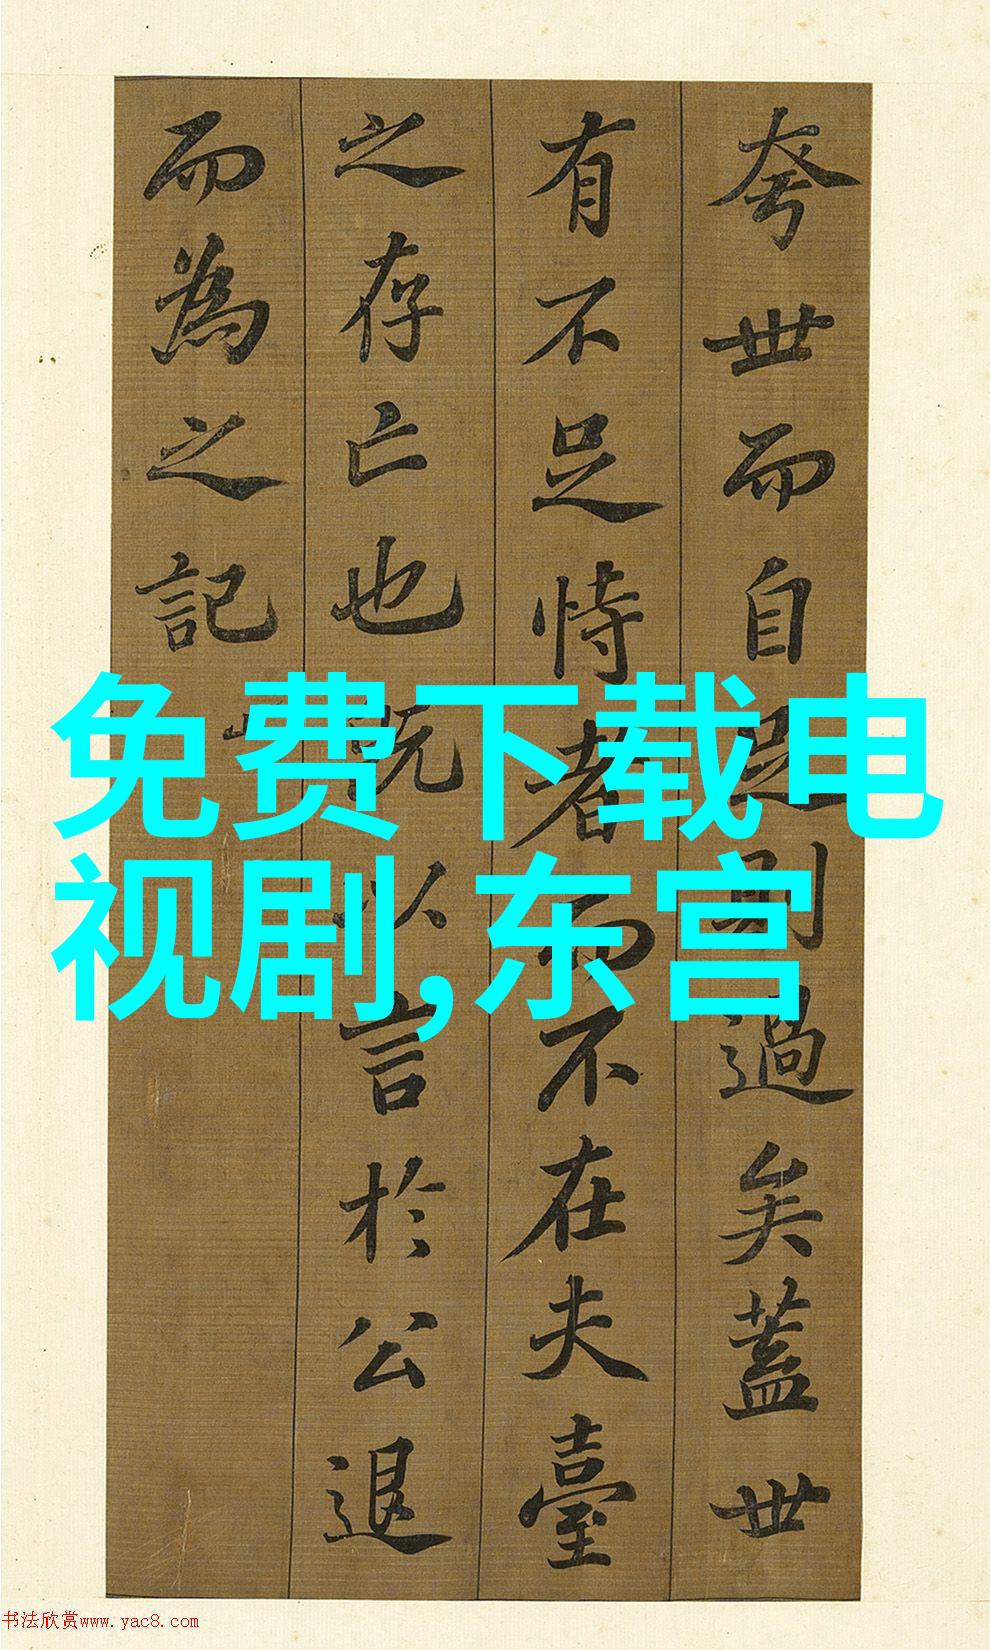 夸世而自足則過矣蓋世
有不足恃者而不在夫臺
之存亡也既以言於公退
而為之記
免费下载电
视剧,东宫
书法欣赏www.yac8.com